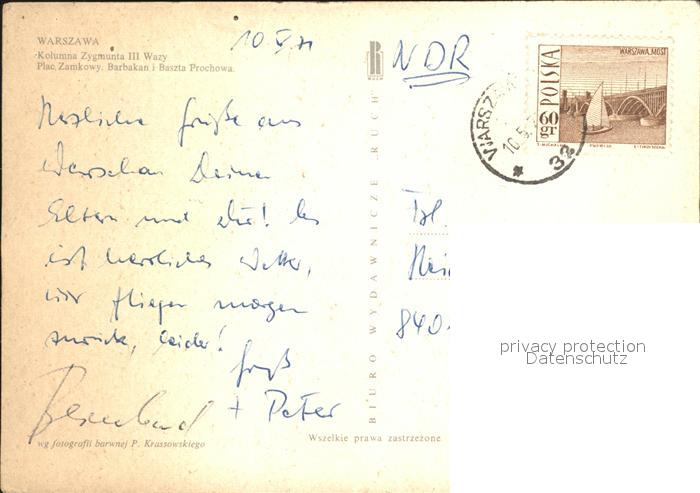 WARSZAWA
Kolumna Zygmunta III Wazy
Plac Zamkowy. Barbakan i Baszta Prochowa.
10.V.71
RUCH
NDR
POLSKA
WARSZAWA, MOST
60 gr
WARSZAWA
10.5.7
32
Herzliche Grüße aus
Warschau Deinen
Eltern und Dir! Es
ist herrliches Wetter,
wir fliegen morgen
zurück, leider!
Gruß
Bernhard
+ Peter
BIURO WYDAWNICZE RUCH
Frl.
840
privacy protection
Datenschutz
wg fotografii barwnej P. Krassowskiego
Wszelkie prawa zastrzeżone